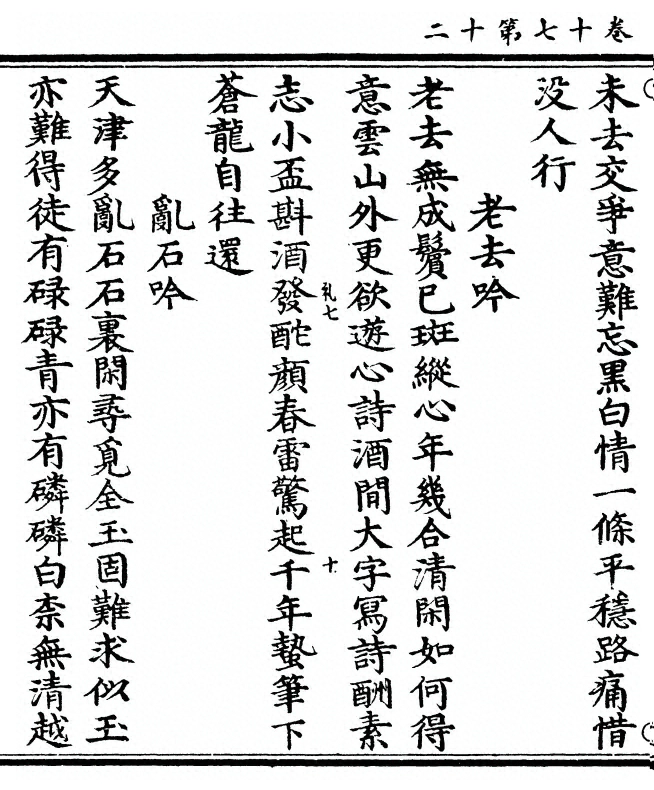 卷十七第十二
未去交爭意難忘黒白情一條平穩路痛惜
没人行
老去吟
老去無成鬢已斑縱心年幾合清閑如何得
意雲山外更欲遊心詩酒間大字寫詩酬素
礼七
十
志小盃斟酒發酡顔春雷驚起千年蟄筆下
蒼龍自往還
亂石吟
天津多亂石石裏閑尋覓全玉固難求似玉
亦難得徒有碌碌青亦有磷磷白柰無清越